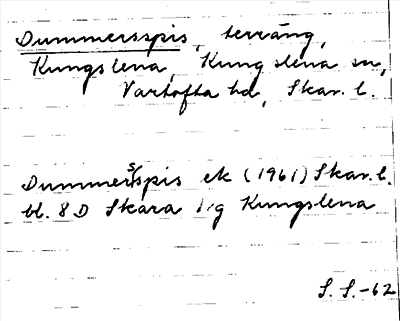 Dummersspis, terräng,
Kungslena, Kungslena sn,
Vartofta hd, Skar. l.
Dummersspis ek (1961) Skar. l.
bl. 8 D Skara lig Kungslena
S. S. -62